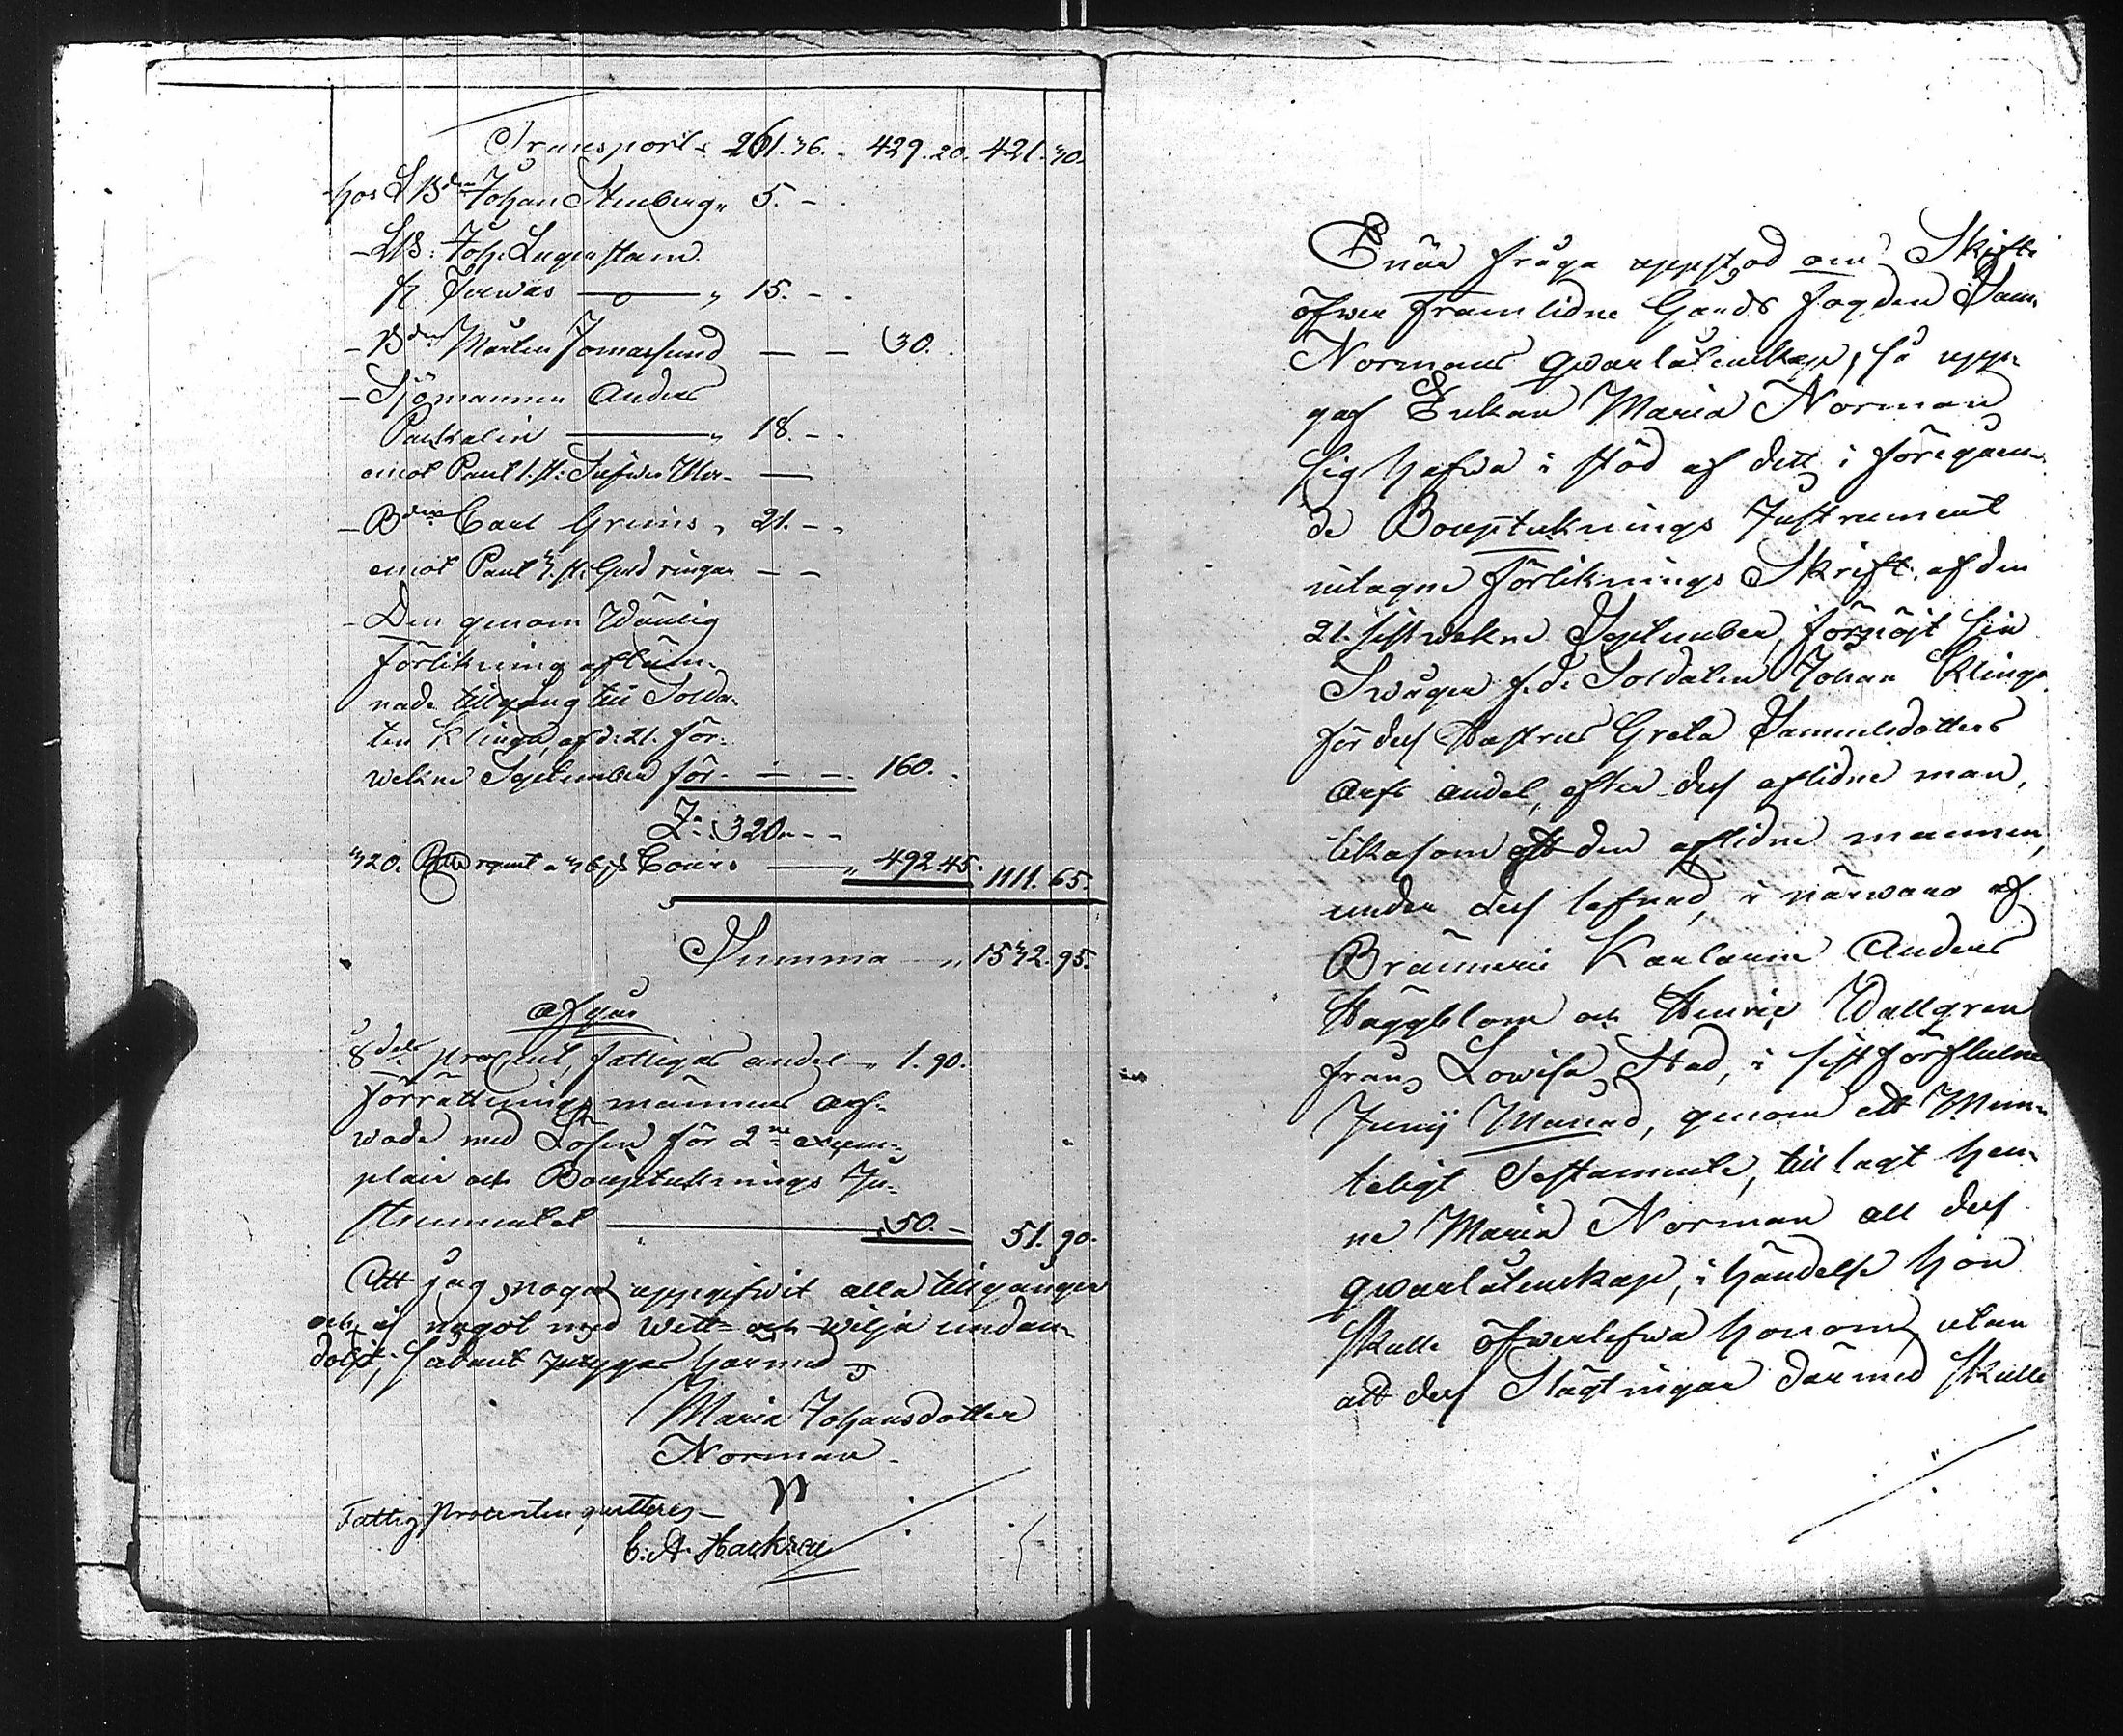 Transport 261.46. 429.20. 421.30.
hos L Bdn Johan Stenberg 5. -
- LB: Joh. Lagerstam
fr Jerwas 15. -
- Bdn Mårten Jonassund - - 30.
- Sjömannen Anders
Packalin 18. -
emot Pant 1. st: Silfwer Ur -
- Bdn Carl Grens 21. -
emot Pant 3. st: Guld ringar - -
- Den genom Wänlig
Förlikning aflem-
nade tillgång till Solda-
ten Klinga, af d: 21. för-
wekne September för - - 160.
320. -
492.45. 1111.65.
Summa 1532.95.
Afgår
8dels procent, fattigas andel 1.90.
Förrättnings männens arf-
wode med Lösen för 2ne exem-
plair och Bouptecknings In-
strumentet 50. - 51.90.
Att jag noga uppgifwit alla tillgångar
och ej något med wett och wilja undan-
dolgt; sådant intygas härmed
Maria Johansdotter
Norman
Fattig Procenten quitteras
C: A. Hackzell
Enär fråga uppstod om Skifte
öfwer framlidne Gårds fogden Sam:
Normans qwarlåtenskap, så upp-
gaf Enkan Maria Norman
sig hafwa i stöd af dett i föregåen-
de Bouptecknings Instrument
intagne Förliknings Skrift, af den
21. sistwekne September, förnöjt sin
Swåger f.d. Soldaten Johan Klinga
för dess Hustrus Greta Samuelsdotters
Arfs andel, efter dess aflidne man,
likasom ock den aflidne mannen,
under dess lefnad, i närwaro af
Brännerie Karlarne Anders
Häggblom och Henric Wallgren
från Lowisa Stad, i sistförflutne
Junij Månad, genom ett Mun-
teligt Testamente, tillagt hen-
ne Maria Norman all dess
qwarlåtenskap, i händelse hon
skulle öfwerlefwa honom, utan
att dess Slägtingar därmed skulle